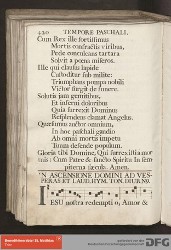 420 TEMPORE PASCHALI.
Cum Rex ille fortissimus
Mortis confractis viribus,
Pede conculcans tartara
Solvit a poena miseros.
Ille qui clausus lapide
Custoditur sub milite:
Triumphans pompa nobili
Victor surgit de funere.
Solutis jam gemitibus,
Et inferni doloribus
Quia surrexit Dominus
Resplendens clamat Angelus.
Quaesumus auctor omnium,
In hoc paschali gaudio
Ab omni mortis impetu
Tuum defende populum.
Gloria tibi Domine, Qui surrexisti a mor
tuis: Cum Patre & sancto Spiritu In sem
piterna saecula. Amen.
IN ASCENSIONE DOMINI AD VES-
PERAS ET LAUDES HYM.
IESU nostra redemptio, Amor &